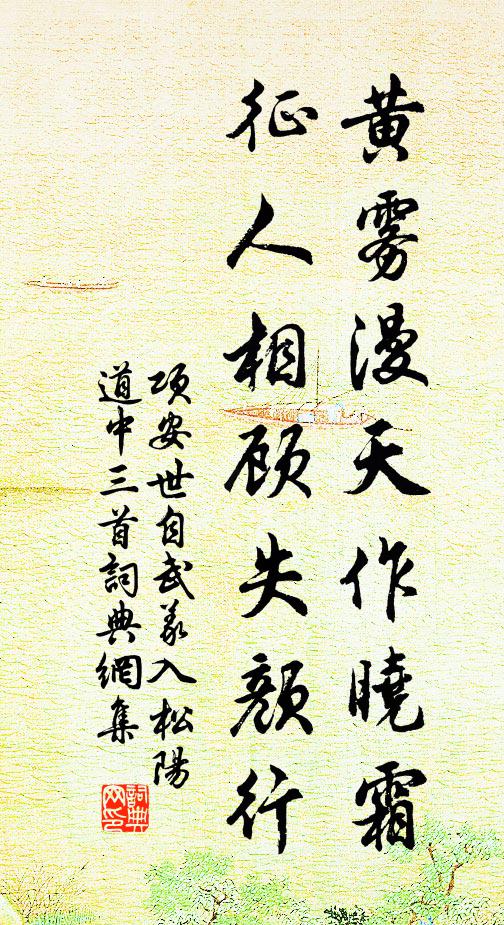 黄雾漫天作曉霜
征人相顾失颜行
项安世自武义入松陽
道中三首詞典網集
詞典
网印